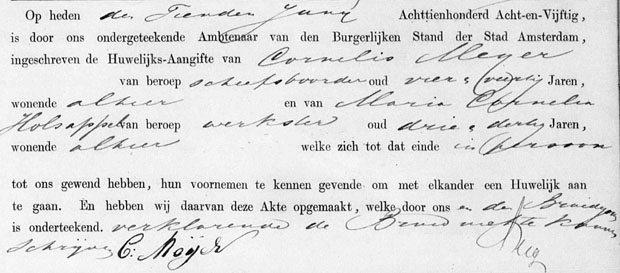 Op heden den Tienden Juny Achttienhonderd Acht-en-Vijftig,
is door den ondergeteekende Ambtenaar van den Burgerlijken Stand der Stad Amsterdam,
ingeschreven de Huwelijks-Aangifte van Cornelis Meyer
van beroep scheepsboorder oud vier & veertig Jaren,
wonende alhier en van Maria Cornelia
Holsappel van beroep werkster oud drie & dertig Jaren,
wonende alhier welke zich tot dat einde in persoon
tot ons gewend hebben, hun voornemen te kennen gevende om met elkander een Huwelijk aan
te gaan. En hebben wij daarvan deze Akte opgemaakt, welke door ons en den Bruidegom
is onderteekend. verklarende de Bruid niet te kunnen
schrijven C: Meijer